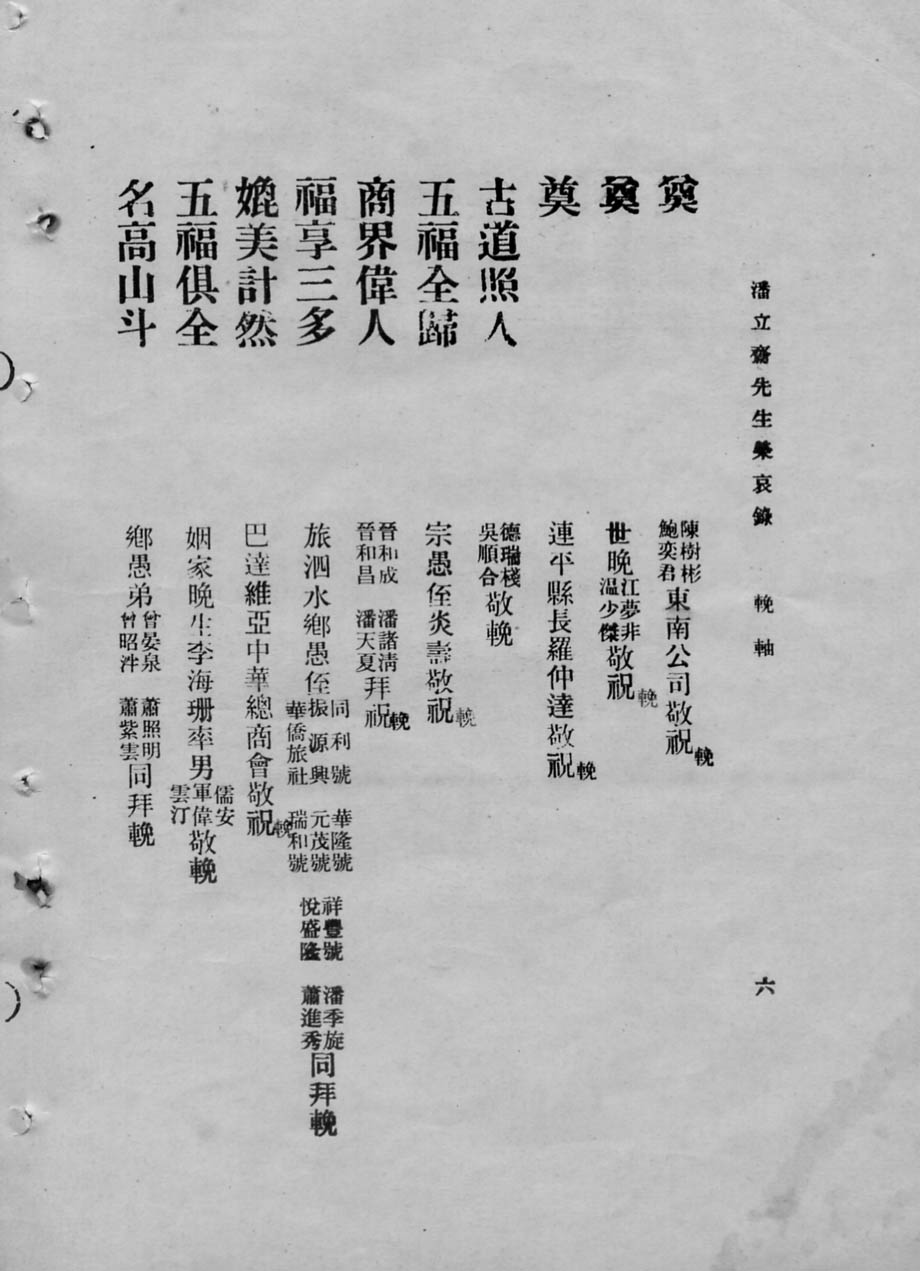 潘立齋先生榮哀錄　輓軸　六
奠　陳樹彬　鮑奕君　東南公司敬祝輓
奠　世晚江夢非　温少傑　敬祝輓
奠　連平縣長羅仲達敬祝輓
古道照人　德瑞棧　吳順合　敬輓
五福全歸　宗愚侄炎壽敬祝輓
商界偉人　晉和成　晉和昌　潘諸淸　潘天夏　拜祝輓
福享三多　旅泗水鄉愚侄　同利號　振源興　華僑旅社　華隆號　元茂號　瑞和號　祥豐號　悅盛隆　潘季旋　蕭進秀　同拜輓
媲美計然　巴達維亞中華總商會敬祝輓
五福俱全　姻家晚生李海珊率男　儒安　軍偉　雲汀　敬輓
名高山斗　鄉愚弟　曾晏泉　曾昭泮　蕭照明　蕭紫雲　同拜輓